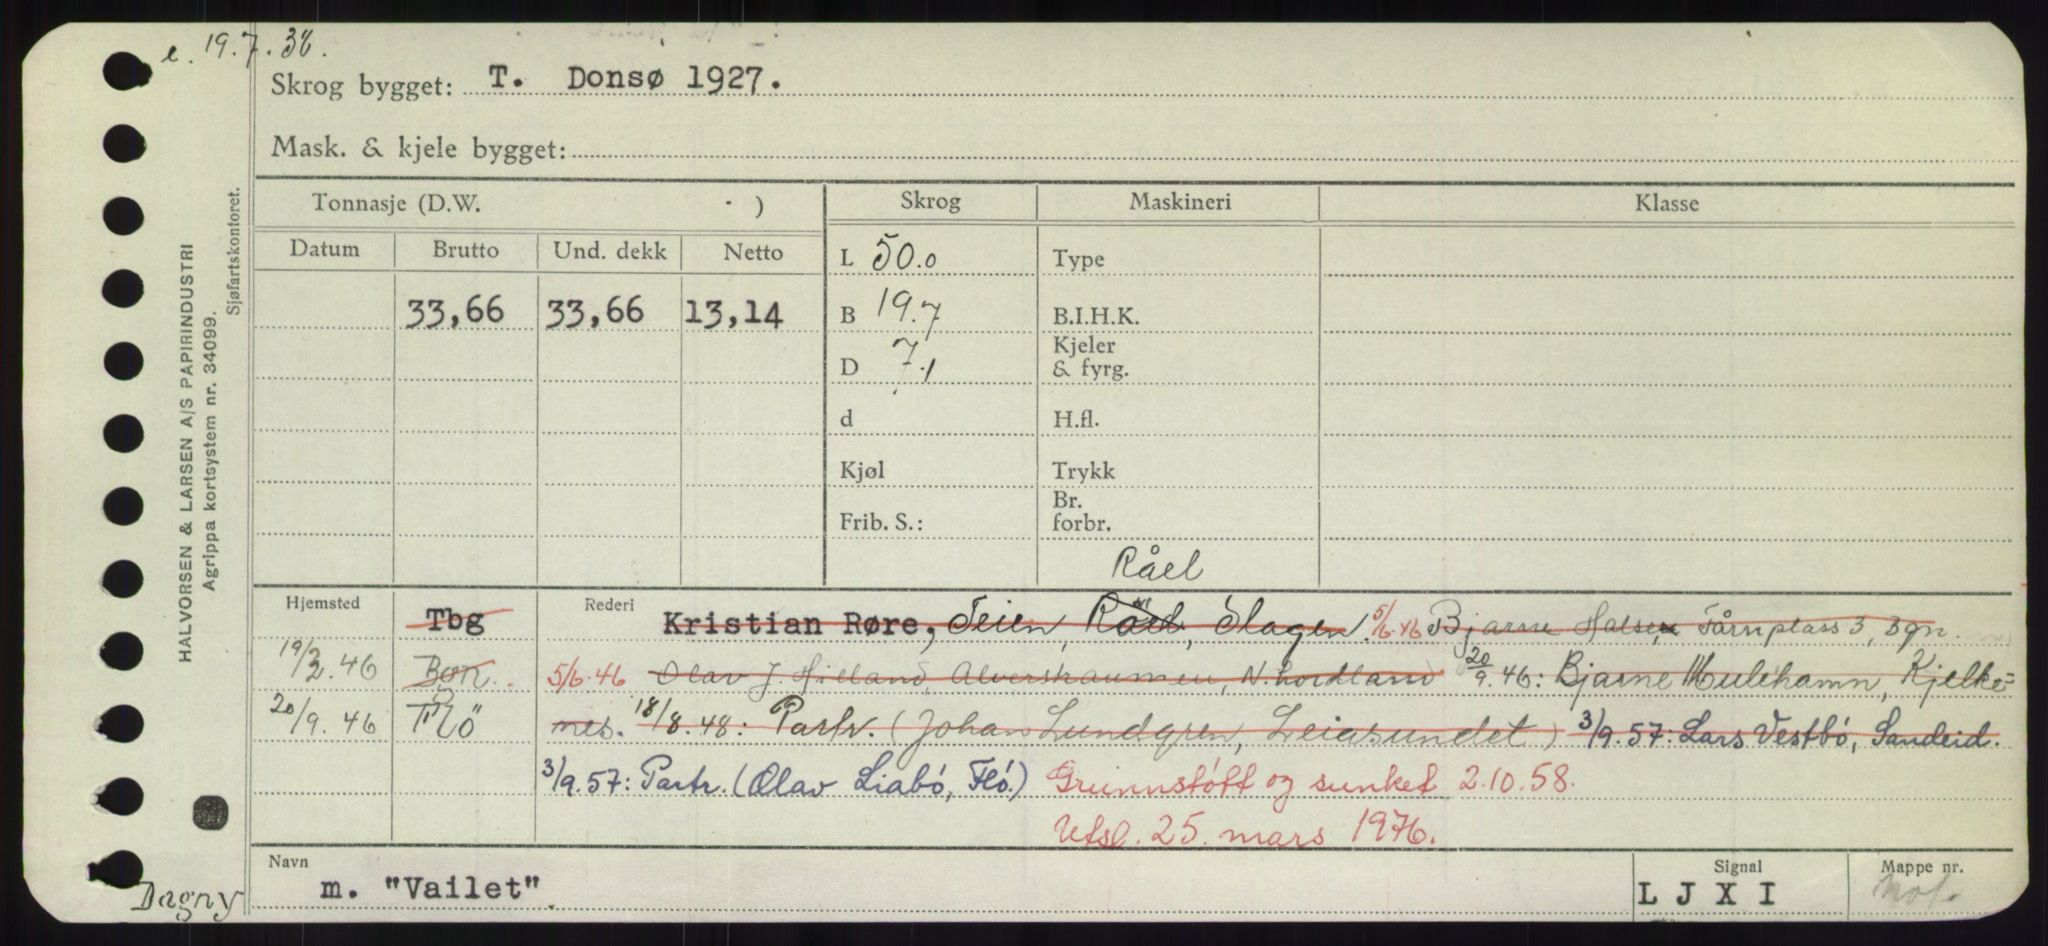 e. 19.7.38.
Skrog bygget: T. Donsø 1927.
Mask. & kjele bygget:
HALVORSEN & LARSEN A/S PAPIRINDUSTRI
Agrippa kortsystem nr. 34099.
Sjøfartskontoret.
Tonnasje (D.W. )
Skrog Maskineri Klasse
Datum Brutto Und. dekk Netto
33,66 33,66 13,14
L 50.0 Type
B 19.7 B.I.H.K.
D 7.1 Kjeler & fyrg.
d H.fl.
Kjøl Trykk
Frib. S.: Br. forbr.
Råel
Hjemsted Tbg Rederi Kristian Røre, Teien, Råel, Slagen. 5/6.46 Bjarne Halsen Tårnplass 3, Bgn.
19/2.46 Bgn. 5/6.46 Olav J. Hilland, Alvershaumen, N. Hordland 20/9.46: Bjarne Mulehamn, Kjelke=
20/9.46 Flö nes. 18/8.48: Partr. (Johan Lundgren, Leiasundet) 3/9.57: Lars Vestbö, Sandeid.
3/9.57: Partr. (Olav Liabö, Flö.) Grunnstött og sunket 2.10.58.
Utsl. 25. mars 1976.
Navn Signal Mappe nr.
m. "Vailet" L J X I Not.
Dagny